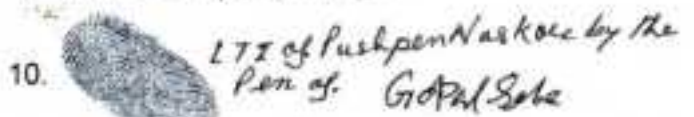 10. LTI of Pushpen Naskar by the
Pen of. Gopal Saha